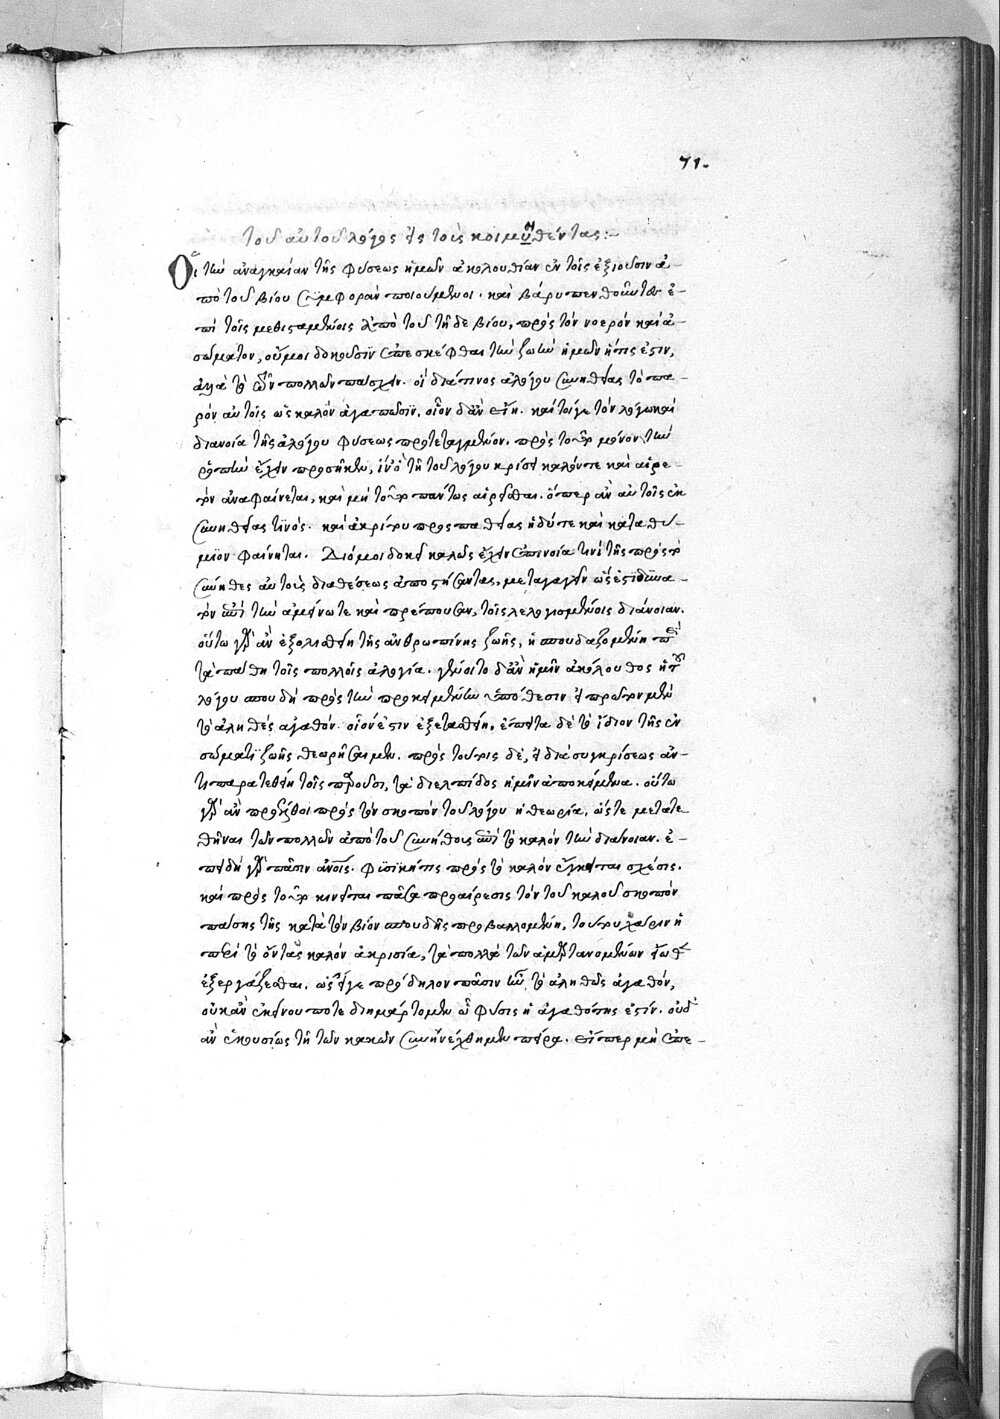 71.
τοῦ αὐτοῦ λόγος εἰς τοὺς κοιμηθέντας:-
Οἱ τὴν ἀναγκαίαν τῆς φύσεως ἡμῶν ἀκολουθίαν ἐν τοῖς ἐξιοῦσιν ἀ-
πὸ τοῦ βίου συμφορὰν ποιούμενοι. καὶ βαρυπενθοῦντες ἐ-
πὶ τοῖς μεθισταμένοις ἀπὸ τοῦ τῇδε βίου, πρὸς τὸν νοερὸν καὶ ἀ-
σώματον, οὔ μοι δοκοῦσιν ἐπεσκέφθαι τὴν ζωὴν ἡμῶν ἥτις ἐστιν,
ἀλλὰ τὸ τῶν πολλῶν πάσχειν. οἳ διά τινος ἀλόγου συνηθείας τὸ πα-
ρὸν αὐτοῖς ὡς καλὸν ἀγαπῶσιν, οἷον δ' ἂν ᾖ. καίτοιγε τὸν λόγω καὶ
διανοία τῆς ἀλόγου φύσεως προτεταγμένον. πρὸς τοῦτο μόνον τὴν
ῥοπὴν ἔχειν προσῆκεν, ὃ τῇ τοῦ λόγου κρίσει καλόν τε καὶ αἱρε-
τὸν ἀναφαίνεται, καὶ μὴ τοῦτο πάντως αἱρεῖσθαι. ὅπερ ἂν αὐτοῖς ἐκ
συνηθείας τινὸς. καὶ ἀκρίτου προσπαθείας ἡδύ τε καὶ καταθύ-
μιον φαίνηται. Διό μοι δοκεῖ καλῶς ἔχειν ἐπινοία τινὶ τῆς πρὸς τὸ
σύνηθες αὐτοὺς διαθέσεως ἀποστήσαντας, μεταγαγεῖν ὡς ἔστι δυνα-
τὸν ἐπὶ τὴν ἀμείνω τε καὶ πρέπουσαν, τοῖς λελογισμένοις διάνοιαν.
οὕτω γὰρ ἂν ἐξοικισθείη τῆς ἀνθρωπίνης ζωῆς, ἡ σπουδαζομένη περὶ
τὰ πάθη τοῖς πολλοῖς ἀλογία. γένοιτο δ' ἂν ἡμῖν ἀκόλουθος ἡ τοῦ
λόγου σπουδὴ πρὸς τὴν προκειμένην ὑπόθεσιν εἰ πρῶτον μὲν
τὸ ἀληθὲς ἀγαθόν. οἷόν ἐστιν ἐξετασθείη, ἔπειτα δὲ τὸ ἴδιον τῆς ἐν
σώματι ζωῆς θεωρήσαιμεν. πρὸς τούτοις δὲ, εἰ διὰ συγκρίσεως ἀν-
τιπαρατεθείη τοῖς παροῦσι, τὰ δι' ἐλπίδος ἡμῖν ἀποκείμενα. οὕτω
γὰρ ἂν προέλθοι πρὸς τὸν σκοπὸν τοῦ λόγου ἡ θεωρία, ὥστε μετατε
θῆναι τῶν πολλῶν ἀπὸ τοῦ συνήθους ἐπὶ τὸ καλὸν τὴν διάνοιαν. ἐ-
πειδὴ γὰρ πᾶσιν ἀνοις. φυσική τις πρὸς τὸ καλὸν ἔγκειται σχέσις.
καὶ πρὸς τοῦτο κινεῖται πᾶσα προαίρεσις τὸν τοῦ καλοῦ σκοπὸν
πάσης τῆς κατὰ τὸν βίον σπουδῆς προβαλλομένη, τούτου χάριν ἡ
περὶ τὸ ὄντως καλὸν ἀκρισία, τὰ πολλὰ τῶν ἁμαρτανομένων εἴωθεν
ἐξεργάζεσθαι. ὡς εἴγε πρόδηλον πᾶσιν ἦν τὸ ἀληθῶς ἀγαθόν,
οὐκ ἂν ἐκείνου ποτε διημάρτομεν ᾧ φύσις ἡ ἀγαθότης ἐστίν. οὐδ'
ἂν ἑκουσίως τῇ τῶν κακῶν συνηνέχθημεν πείρα. εἴπερ μὴ ἐπε-